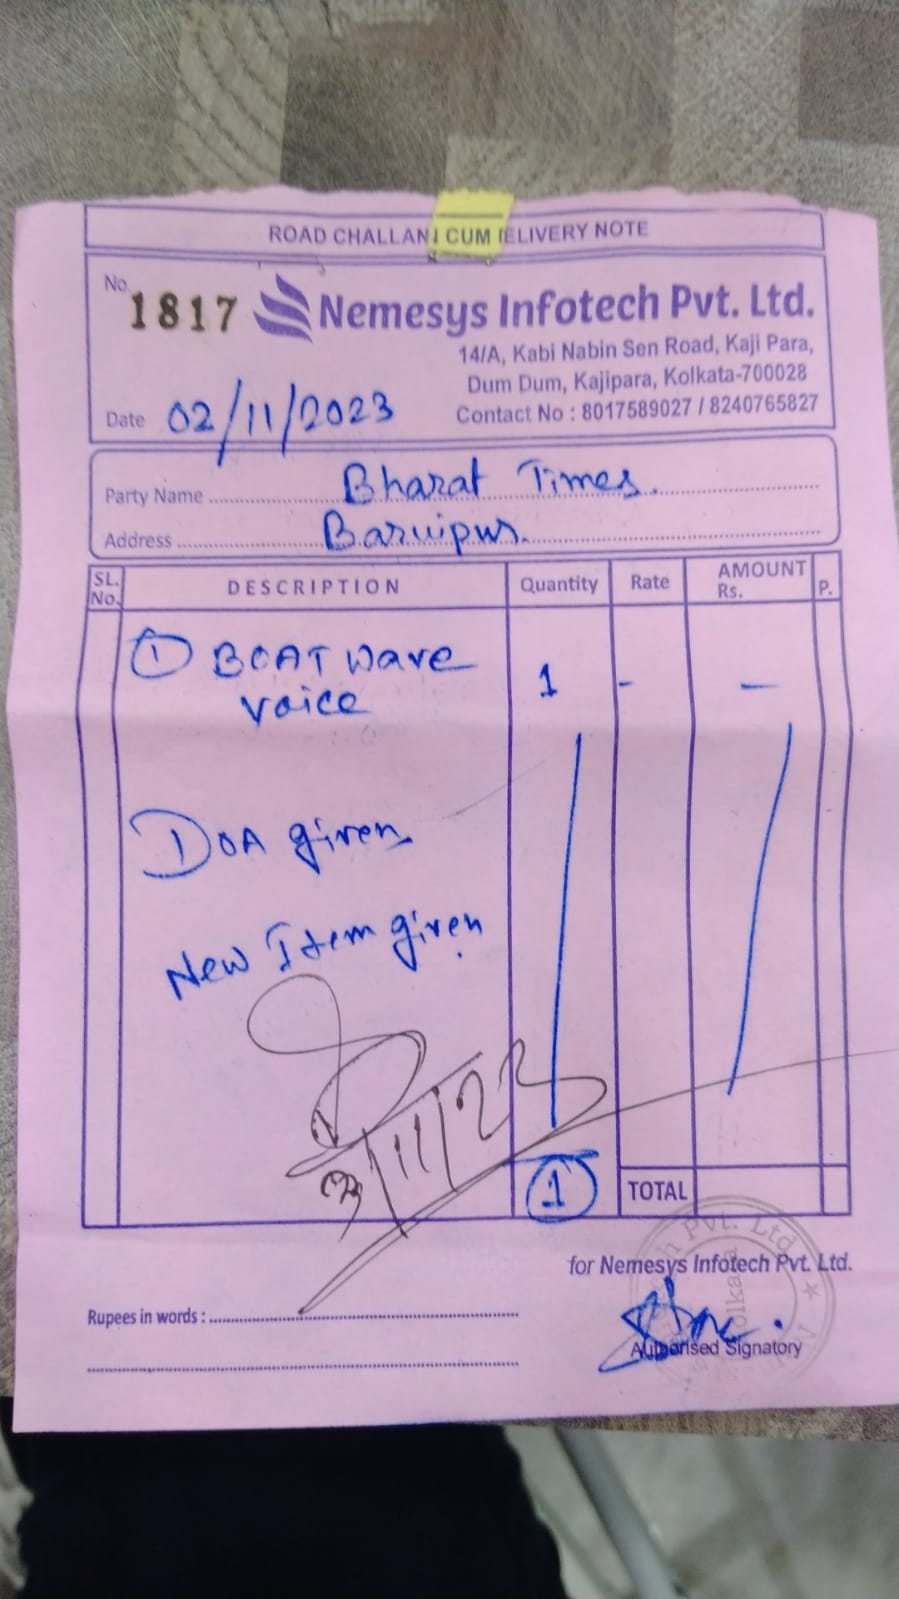 ROAD CHALLAN CUM DELIVERY NOTE
No. 1817
Nemesys Infotech Pvt. Ltd.
14/A, Kabi Nabin Sen Road, Kaji Para,
Dum Dum, Kajipara, Kolkata-700028
Contact No : 8017589027 / 8240765827
Date 02/11/2023
Party Name Bharat Times.
Address Baruipur.
SL. No. DESCRIPTION Quantity Rate AMOUNT Rs. P.
① BOAT Wave 1 - -
Voice
DOA given
New Item given
3/11/23
① TOTAL
for Nemesys Infotech Pvt. Ltd.
Rupees in words :
Authorised Signatory